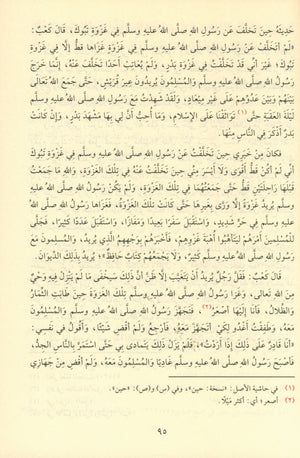 حَدِيثَهُ حِينَ تَخَلَّفَ عَنْ رَسُولِ اللهِ صلَّى اللهُ عليهِ وسلَّم فِي غَزْوَةِ تَبُوكَ، قَالَ كَعْبٌ:
«لَمْ أَتَخَلَّفْ عَنْ رَسُولِ اللهِ صلَّى اللهُ عليهِ وسلَّم فِي غَزْوَةٍ غَزَاهَا قَطُّ إِلَّا فِي غَزْوَةِ
تَبُوكَ، غَيْرَ أَنِّي قَدْ تَخَلَّفْتُ فِي غَزْوَةِ بَدْرٍ، وَلَمْ يُعَاتِبْ أَحَدًا تَخَلَّفَ عَنْهُ، إِنَّمَا خَرَجَ
رَسُولُ اللهِ صلَّى اللهُ عليهِ وسلَّم وَالْمُسْلِمُونَ يُرِيدُونَ عِيرَ قُرَيْشٍ، حَتَّى جَمَعَ اللهُ تَعَالَى
بَيْنَهُمْ وَبَيْنَ عَدُوِّهِمْ عَلَى غَيْرِ مِيعَادٍ، وَلَقَدْ شَهِدْتُ مَعَ رَسُولِ اللهِ صلَّى اللهُ عليهِ وسلَّم
لَيْلَةَ الْعَقَبَةِ حَتَّى(١) تَوَاثَقْنَا عَلَى الْإِسْلَامِ، وَمَا أُحِبُّ أَنَّ لِي بِهَا مَشْهَدَ بَدْرٍ، وَإِنْ كَانَتْ
بَدْرٌ أَذْكَرَ فِي النَّاسِ مِنْهَا.
فَكَانَ مِنْ خَبَرِي حِينَ تَخَلَّفْتُ عَنْ رَسُولِ اللهِ صلَّى اللهُ عليهِ وسلَّم فِي غَزْوَةِ تَبُوكَ
أَنِّي لَمْ أَكُنْ قَطُّ أَقْوَى وَلَا أَيْسَرَ مِنِّي حِينَ تَخَلَّفْتُ عَنْهُ فِي تِلْكَ الْغَزْوَةِ، وَاللهِ مَا جَمَعْتُ
قَبْلَهَا رَاحِلَتَيْنِ قَطُّ حَتَّى جَمَعْتُهُمَا فِي تِلْكَ الْغَزْوَةِ، وَلَمْ يَكُنْ رَسُولُ اللهِ صلَّى اللهُ عليهِ
وسلَّم يُرِيدُ غَزْوَةً إِلَّا وَرَّى بِغَيْرِهَا حَتَّى كَانَتْ تِلْكَ الْغَزْوَةُ، فَغَزَاهَا رَسُولُ اللهِ صلَّى اللهُ
عليهِ وسلَّم فِي حَرٍّ شَدِيدٍ، وَاسْتَقْبَلَ سَفَرًا بَعِيدًا وَمَفَازًا، وَاسْتَقْبَلَ عَدَدًا كَثِيرًا، فَجَلَّى
لِلْمُسْلِمِينَ أَمْرَهُمْ لِيَتَأَهَّبُوا أُهْبَةَ غَزْوِهِمْ، فَأَخْبَرَهُمْ بِوَجْهِهِمُ الَّذِي يُرِيدُ، وَالْمُسْلِمُونَ مَعَ
رَسُولِ اللهِ صلَّى اللهُ عليهِ وسلَّم كَثِيرٌ، وَلَا يَجْمَعُهُمْ كِتَابٌ حَافِظٌ»، يُرِيدُ بِذَلِكَ الدِّيوَانَ.
قَالَ كَعْبٌ: فَقَلَّ رَجُلٌ يُرِيدُ أَنْ يَتَغَيَّبَ إِلَّا ظَنَّ أَنَّ ذَلِكَ سَيَخْفَى مَا لَمْ يَنْزِلْ فِيهِ وَحْيٌ
مِنَ اللهِ تَعَالَى، وَغَزَا رَسُولُ اللهِ صلَّى اللهُ عليهِ وسلَّم تِلْكَ الْغَزْوَةَ حِينَ طَابَتِ الثِّمَارُ
وَالظِّلَالُ، فَأَنَا إِلَيْهَا أَصْعَرُ(٢)، فَتَجَهَّزَ رَسُولُ اللهِ صلَّى اللهُ عليهِ وسلَّم وَالْمُسْلِمُونَ
مَعَهُ، وَطَفِقْتُ أَغْدُو لِكَيْ أَتَجَهَّزَ مَعَهُ، فَأَرْجِعُ وَلَمْ أَقْضِ شَيْئًا، وَأَقُولُ فِي نَفْسِي:
«أَنَا قَادِرٌ عَلَى ذَلِكَ إِذَا أَرَدْتُ»، فَلَمْ يَزَلْ ذَلِكَ يَتَمَادَى بِي حَتَّى اسْتَمَرَّ بِالنَّاسِ الْجِدُّ،
فَأَصْبَحَ رَسُولُ اللهِ صلَّى اللهُ عليهِ وسلَّم غَادِيًا وَالْمُسْلِمُونَ مَعَهُ، وَلَمْ أَقْضِ مِنْ جَهَازِي
(١) في حاشية الأصل: «نسخة: حين»، وفي (س) و(ص): «حين».
(٢) أصعر؛ أي: أكثر مَيْلًا.
٩٥